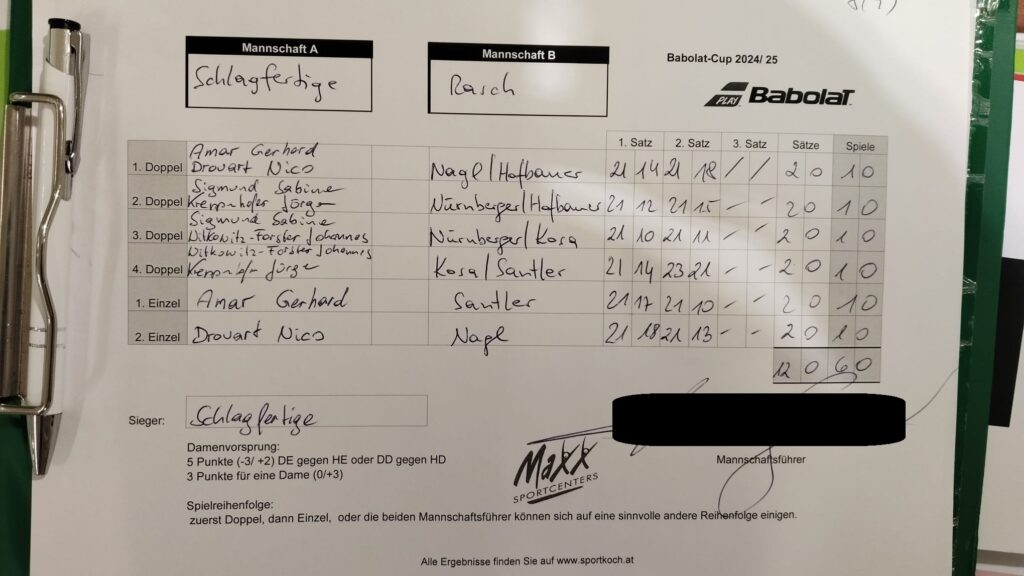 Mannschaft A
Schlagfertige
Mannschaft B
Rasch
Babolat-Cup 2024/ 25
PLAY BabolaT
1. Satz 2. Satz 3. Satz Sätze Spiele
Amar Gerhard
1. Doppel Drovart Nico Nagl/Hofbauer 21 14 21 18 / / 2 0 1 0
Sigmund Sabine
2. Doppel Kreppnhofer Jürge Nürnberger/Hofbauer 21 12 21 15 - - 2 0 1 0
Sigmund Sabine
3. Doppel Witkowitz-Forster Johannes Nürnberger/Kosa 21 10 21 11 - - 2 0 1 0
Witkowitz-Forster Johannes
4. Doppel Jürge Kosa/Santler 21 14 23 21 - - 2 0 1 0
1. Einzel Amar Gerhard Santler 21 17 21 10 - - 2 0 1 0
2. Einzel Drovart Nico Nagl 21 18 21 13 - - 2 0 1 0
12 0 6 0
Sieger: Schlagfertige
Damenvorsprung:
5 Punkte (-3/ +2) DE gegen HE oder DD gegen HD
3 Punkte für eine Dame (0/+3)
MaXX
SPORTCENTERS
Mannschaftsführer
Spielreihenfolge:
zuerst Doppel, dann Einzel, oder die beiden Mannschaftsführer können sich auf eine sinnvolle andere Reihenfolge einigen.
Alle Ergebnisse finden Sie auf www.sportkoch.at